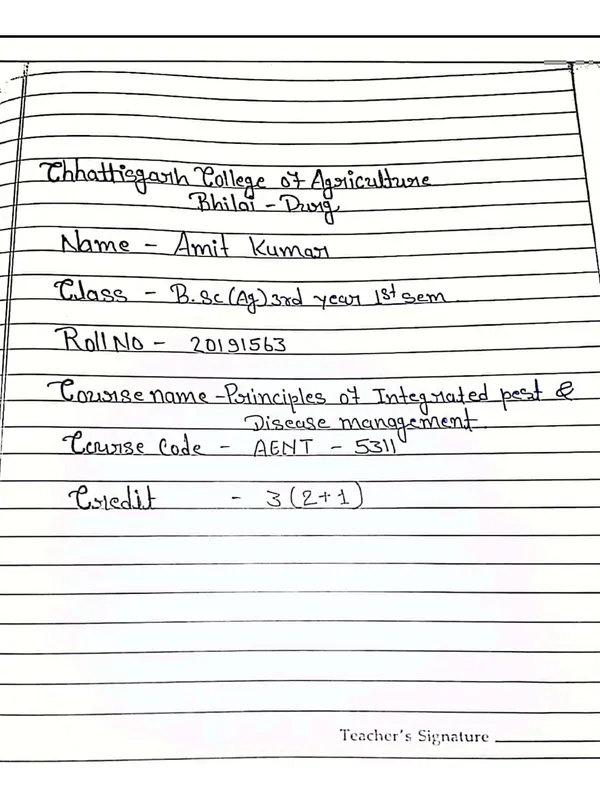 Chhattisgarh College of Agriculture
Bhilai - Durg
Name - Amit Kumar
Class - B.Sc (Ag) 3rd year 1st sem
Roll No - 20191563
Course name - Principles of Integrated pest &
Disease management
Course Code - AENT - 5311
Credit - 3 (2+1)
Teacher's Signature